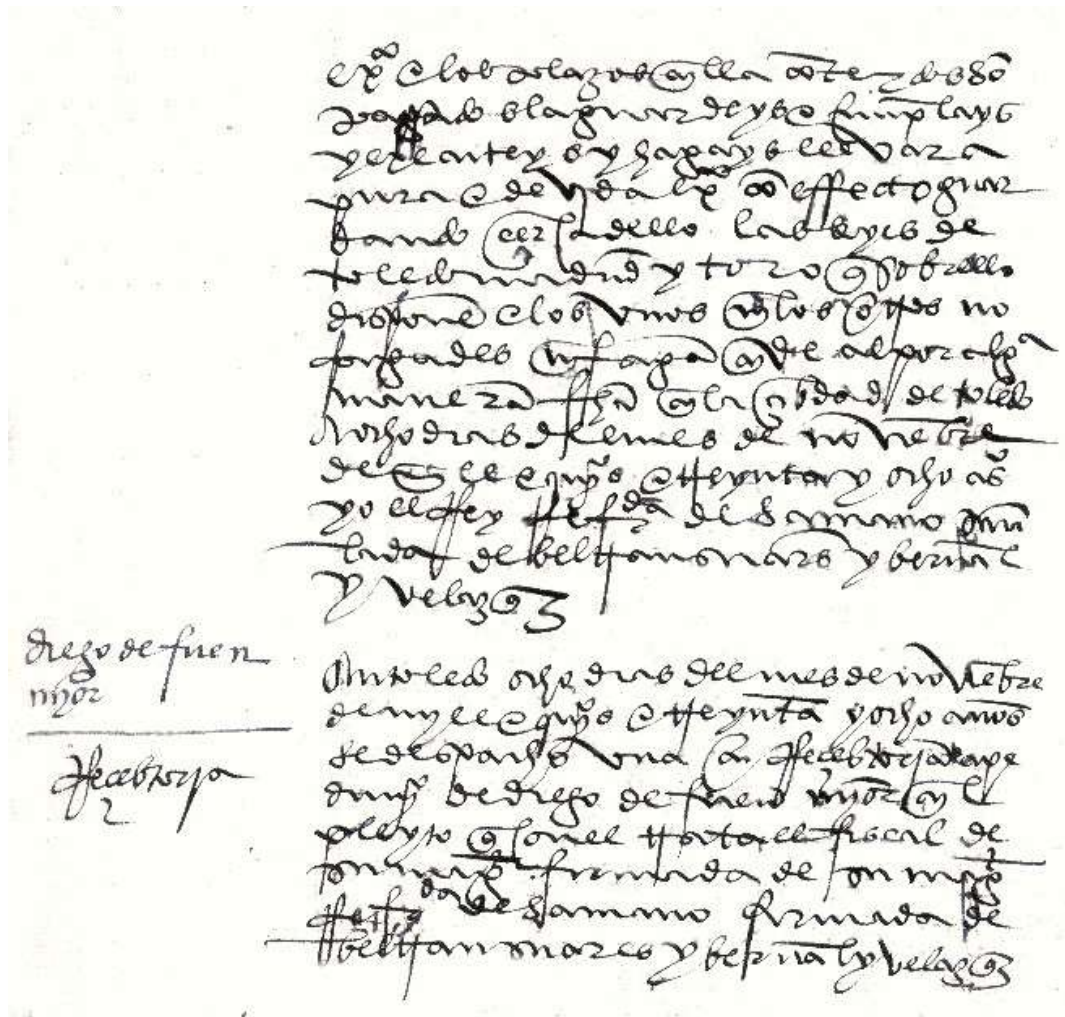 e los plazos en ella
pasados la guardeys e cunplays
y executeys y hagays llevar a
pura e devida effecto guar
dando cerca dello las leyes de
toledo madrid y toro q sobrello
disponen e los unos ni los otros no
fagades ni fagan ende al por alga
manera fha en la cibdad de toledo
a ocho dias del mes de novienbre
de mill e quis e treynta y ocho as
yo el Rey Refda de samano
lada de beltran suares y bernal
y velazqz
diego de fuen
mayor
Receptoria
en toledo ocho dias del mes de novienbre
de myll e quis e treynta y ocho anos
se despacho una Receptoria a pe
dimy de diego de fuen mayor en el
pleyto q con el trata el fiscal de
su mag firmada de su mag
Refda de samano firmada de
beltran suares y bernal y velazqz